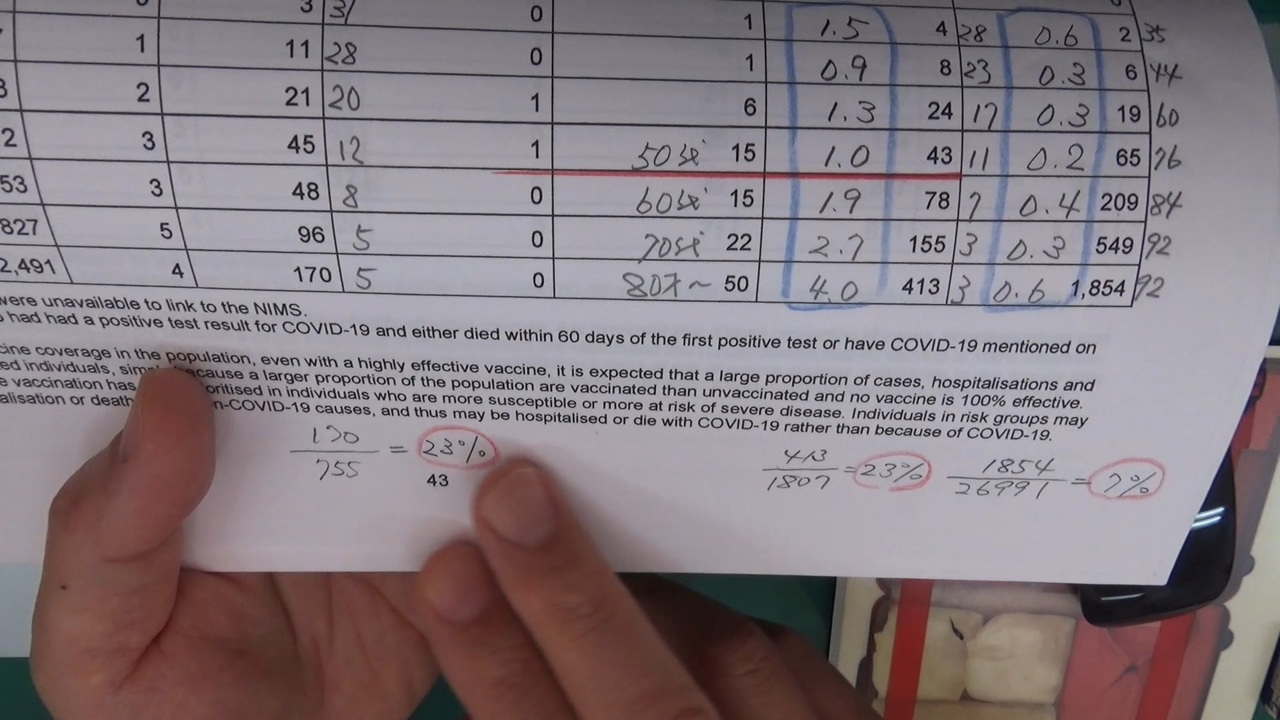 3 31 0 1 1.5 4 28 0.6 2 35
1 11 28 0 1 0.9 8 23 0.3 6 44
3 2 21 20 1 6 1.3 24 17 0.3 19 60
2 3 45 12 1 15 1.0 43 11 0.2 65 76
53 3 48 8 0 15 1.9 78 7 0.4 209 84
827 5 96 5 0 22 2.7 155 3 0.3 549 92
2,491 4 170 5 0 50 4.0 413 3 0.6 1,854 92
were unavailable to link to the NIMS.
had had a positive test result for COVID-19 and either died within 60 days of the first positive test or have COVID-19 mentioned on
cine coverage in the population, even with a highly effective vaccine, it is expected that a large proportion of cases, hospitalisations and
ed individuals, because a larger proportion of the population are vaccinated than unvaccinated and no vaccine is 100% effective.
e vaccination has oritised in individuals who are more susceptible or more at risk of severe disease. Individuals in risk groups may
alisation or death n-COVID-19 causes, and thus may be hospitalised or die with COVID-19 rather than because of COVID-19.
170/755 = 23% 413/1807 = 23% 1854/26991 = 7%
43